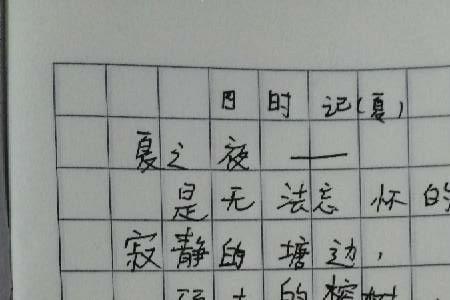 四时记(夏)
夏之夜——
是无法忘怀的
寂静的塘边,
的榕树